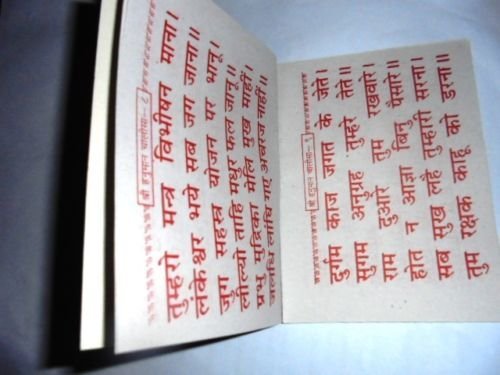 श्री हनुमान चालीसा—८
तुम्हरो मंत्र विभीषन माना।
लंकेश्वर भये सब जग जाना॥
जुग सहस्र योजन पर भानू।
लील्यो ताहि मधुर फल जानू॥
प्रभु मुद्रिका मेलि मुख माहीं।
जलधि लांघि गए अचरज नाहीं॥
श्री हनुमान चालीसा—९
दुर्गम काज जगत के जेते।
सुगम अनुग्रह तुम्हरे तेते॥
राम दुआरे तुम रखवारे।
होत न आज्ञा बिनु पैसारे॥
सब सुख लहैं तुम्हारी सरना।
तुम रक्षक काहू को डरना॥